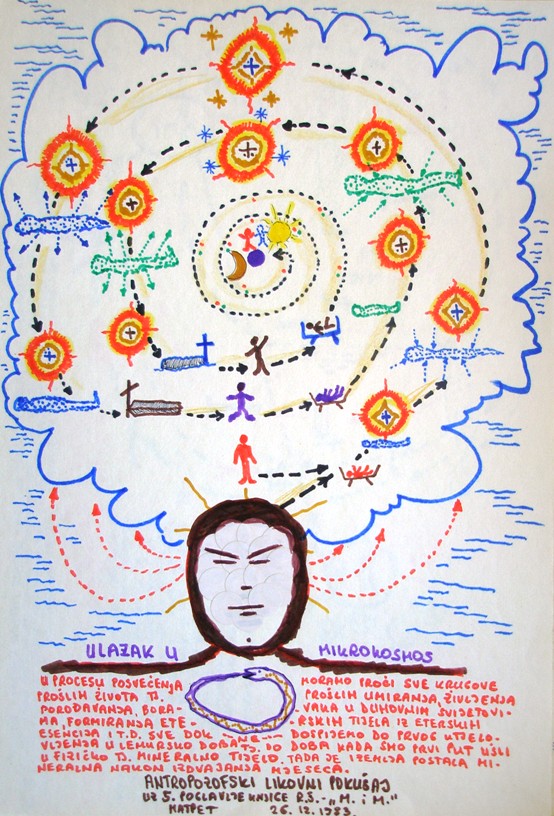 ULAZAK U MIKROKOSMOS
U PROCESU POSVEĆENJA MORAMO PROĆI SVE KRUGOVE
PROŠLIH ŽIVOTA TJ. PROŠLIH UMIRANJA, ŽIVLJENJA
PORAĐAVANJA, BORA- VAKA U DUHOVNIM SVIJETOVI-
MA, FORMIRANJA ETE- RSKIH TIJELA IZ ETERSKIH
ESENCIJA I T.D. SVE DOK NE DOSPIJEMO DO PRVOG UTJELO-
VLJENJA U LEMURSKO DOBA TJ. DO DOBA KADA SMO PRVI PUT UŠLI
U FIZIČKO TJ. MINERALNO TIJELO. TADA JE I ZEMLJA POSTALA MI-
NERALNA NAKON IZDVAJANJA MJESECA.
ANTROPOZOFSKI LIKOVNI POKUŠAJ
UZ 5. POGLAVLJE KNJIGE R.S. - "M. i M."
MATPET 26.12.1983.